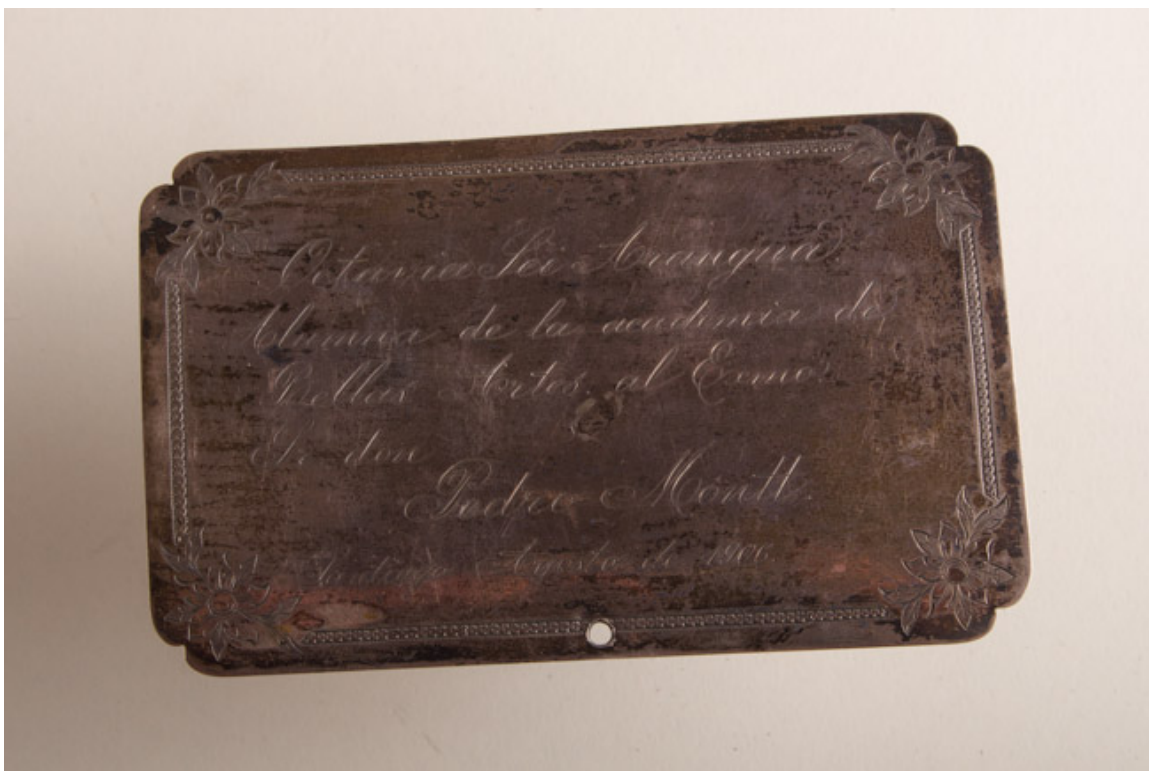 Octavia Sei Arangua
Alumna de la academia de
Bellas Artes, al Exmo.
Sr. don
Pedro Montt.
Santiago Agosto de 1906